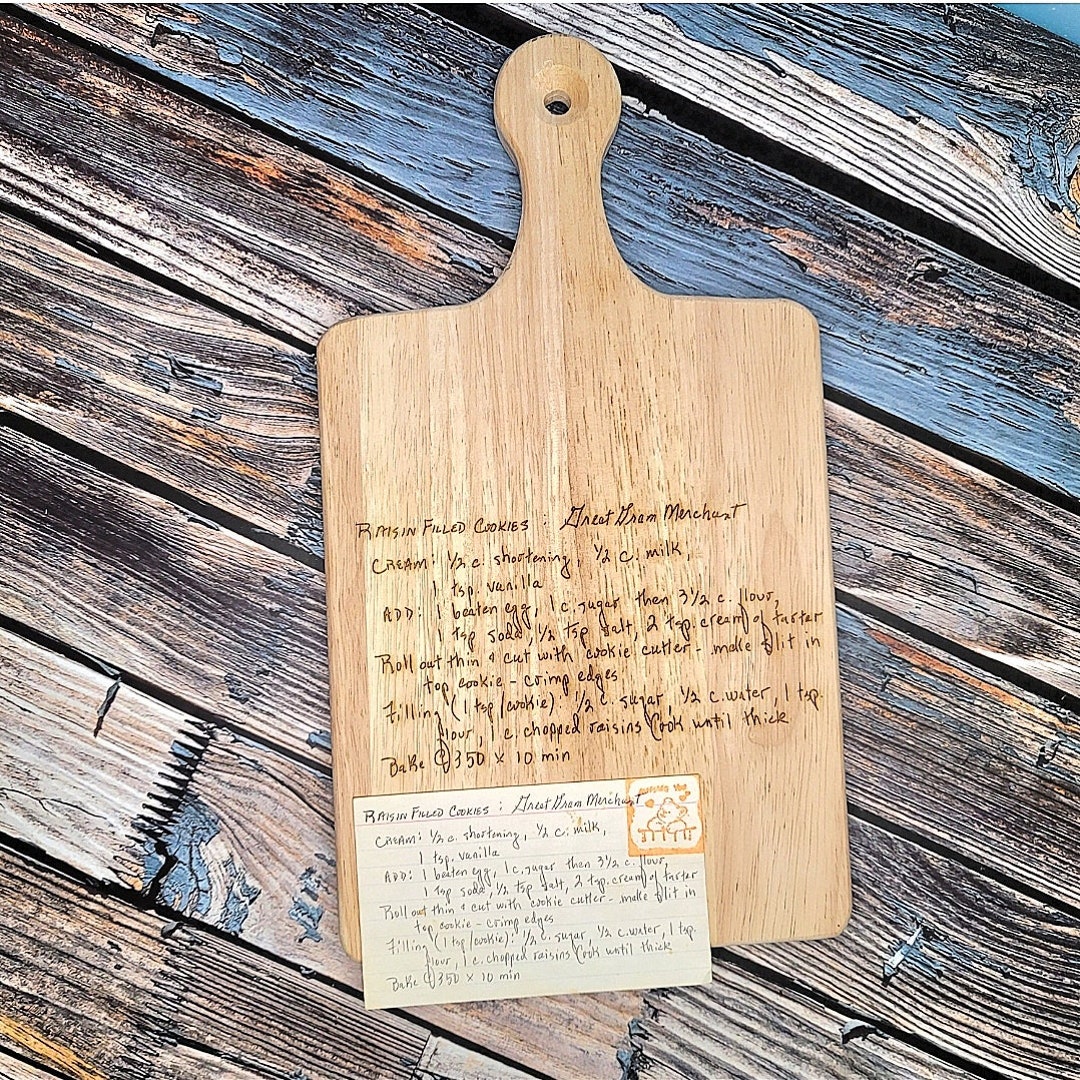 RAISIN FILLED COOKIES : Great Gram Merchant
CREAM: 1/2 c. shortening, 1/2 c. milk,
1 tsp. vanilla
ADD: 1 beaten egg, 1 c. sugar then 3 1/2 c. flour,
1 tsp soda, 1/2 tsp salt, 2 tsp. cream of tarter
Roll out thin & cut with cookie cutter - make slit in
top cookie - crimp edges
Filling (1 tsp/cookie): 1/2 c. sugar, 1/2 c. water, 1 tsp.
flour, 1 c. chopped raisins Cook until thick
Bake @ 350 x 10 min
RAISIN FILLED COOKIES : Great Gram Merchant
CREAM: 1/2 c. shortening, 1/2 c. milk,
1 tsp. vanilla
ADD: 1 beaten egg, 1 c. sugar then 3 1/2 c. flour,
1 tsp soda, 1/2 tsp salt, 2 tsp. cream of tarter
Roll out thin & cut with cookie cutter - make slit in
top cookie - crimp edges
Filling (1 tsp/cookie): 1/2 c. sugar, 1/2 c. water, 1 tsp.
flour, 1 c. chopped raisins Cook until thick
Bake @ 350 x 10 min